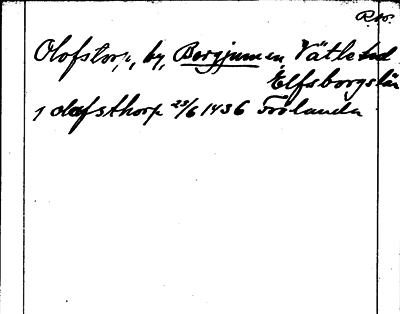 Olofstorp, by, Bergjumen, Vätle hd
Elfsborgs län
i olafsthorp 23/6 1436 Frølanda